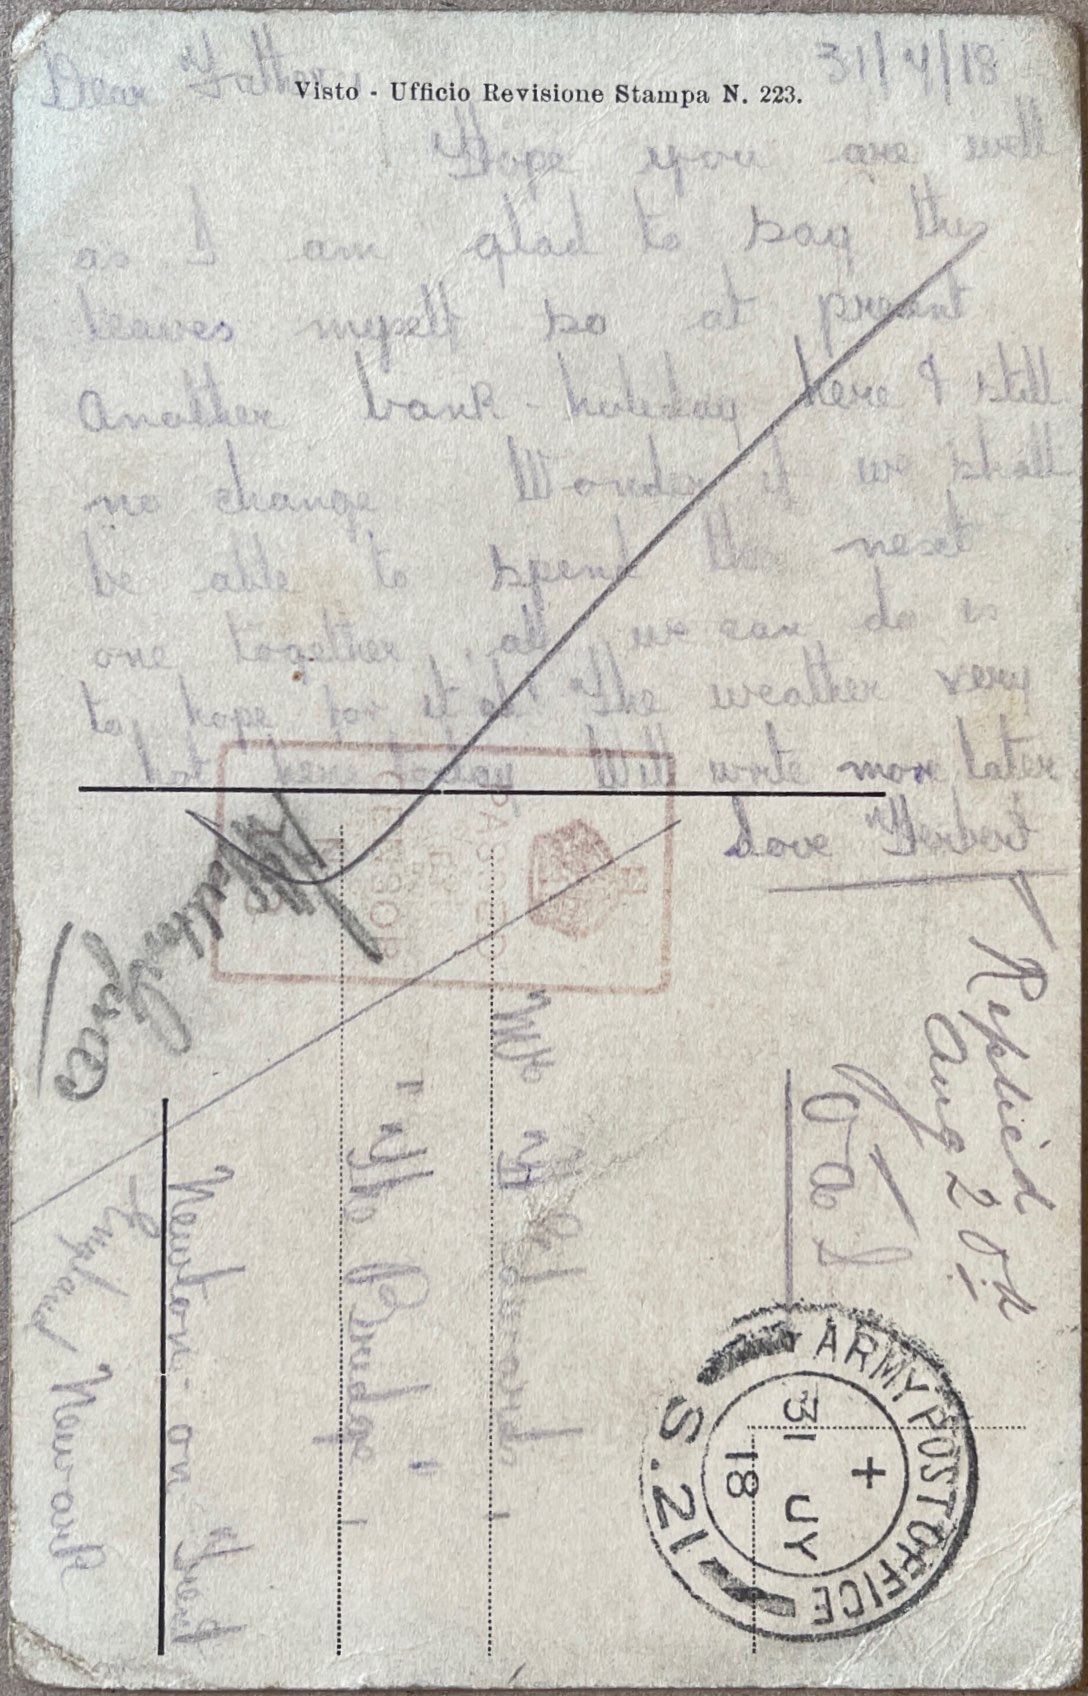 31/7/18
Dear Father,
Visto - Ufficio Revisione Stampa N. 223.
Hope you are well
as I am glad to say this
leaves myself so at present
Another bank-holiday here & still
no change. Wonder if we shall
be able to spend the next
one together, all we can do is
to hope for it eh! The weather very
hot here today Will write more later
Love Herbert
Replied
Aug 20th
OAS
ARMY POST OFFICE
+
31 JY
18
S.21
PASSED
BY
CENSOR
No
Mr
"The Bridge"
Newton-on-Trent
Newark
England